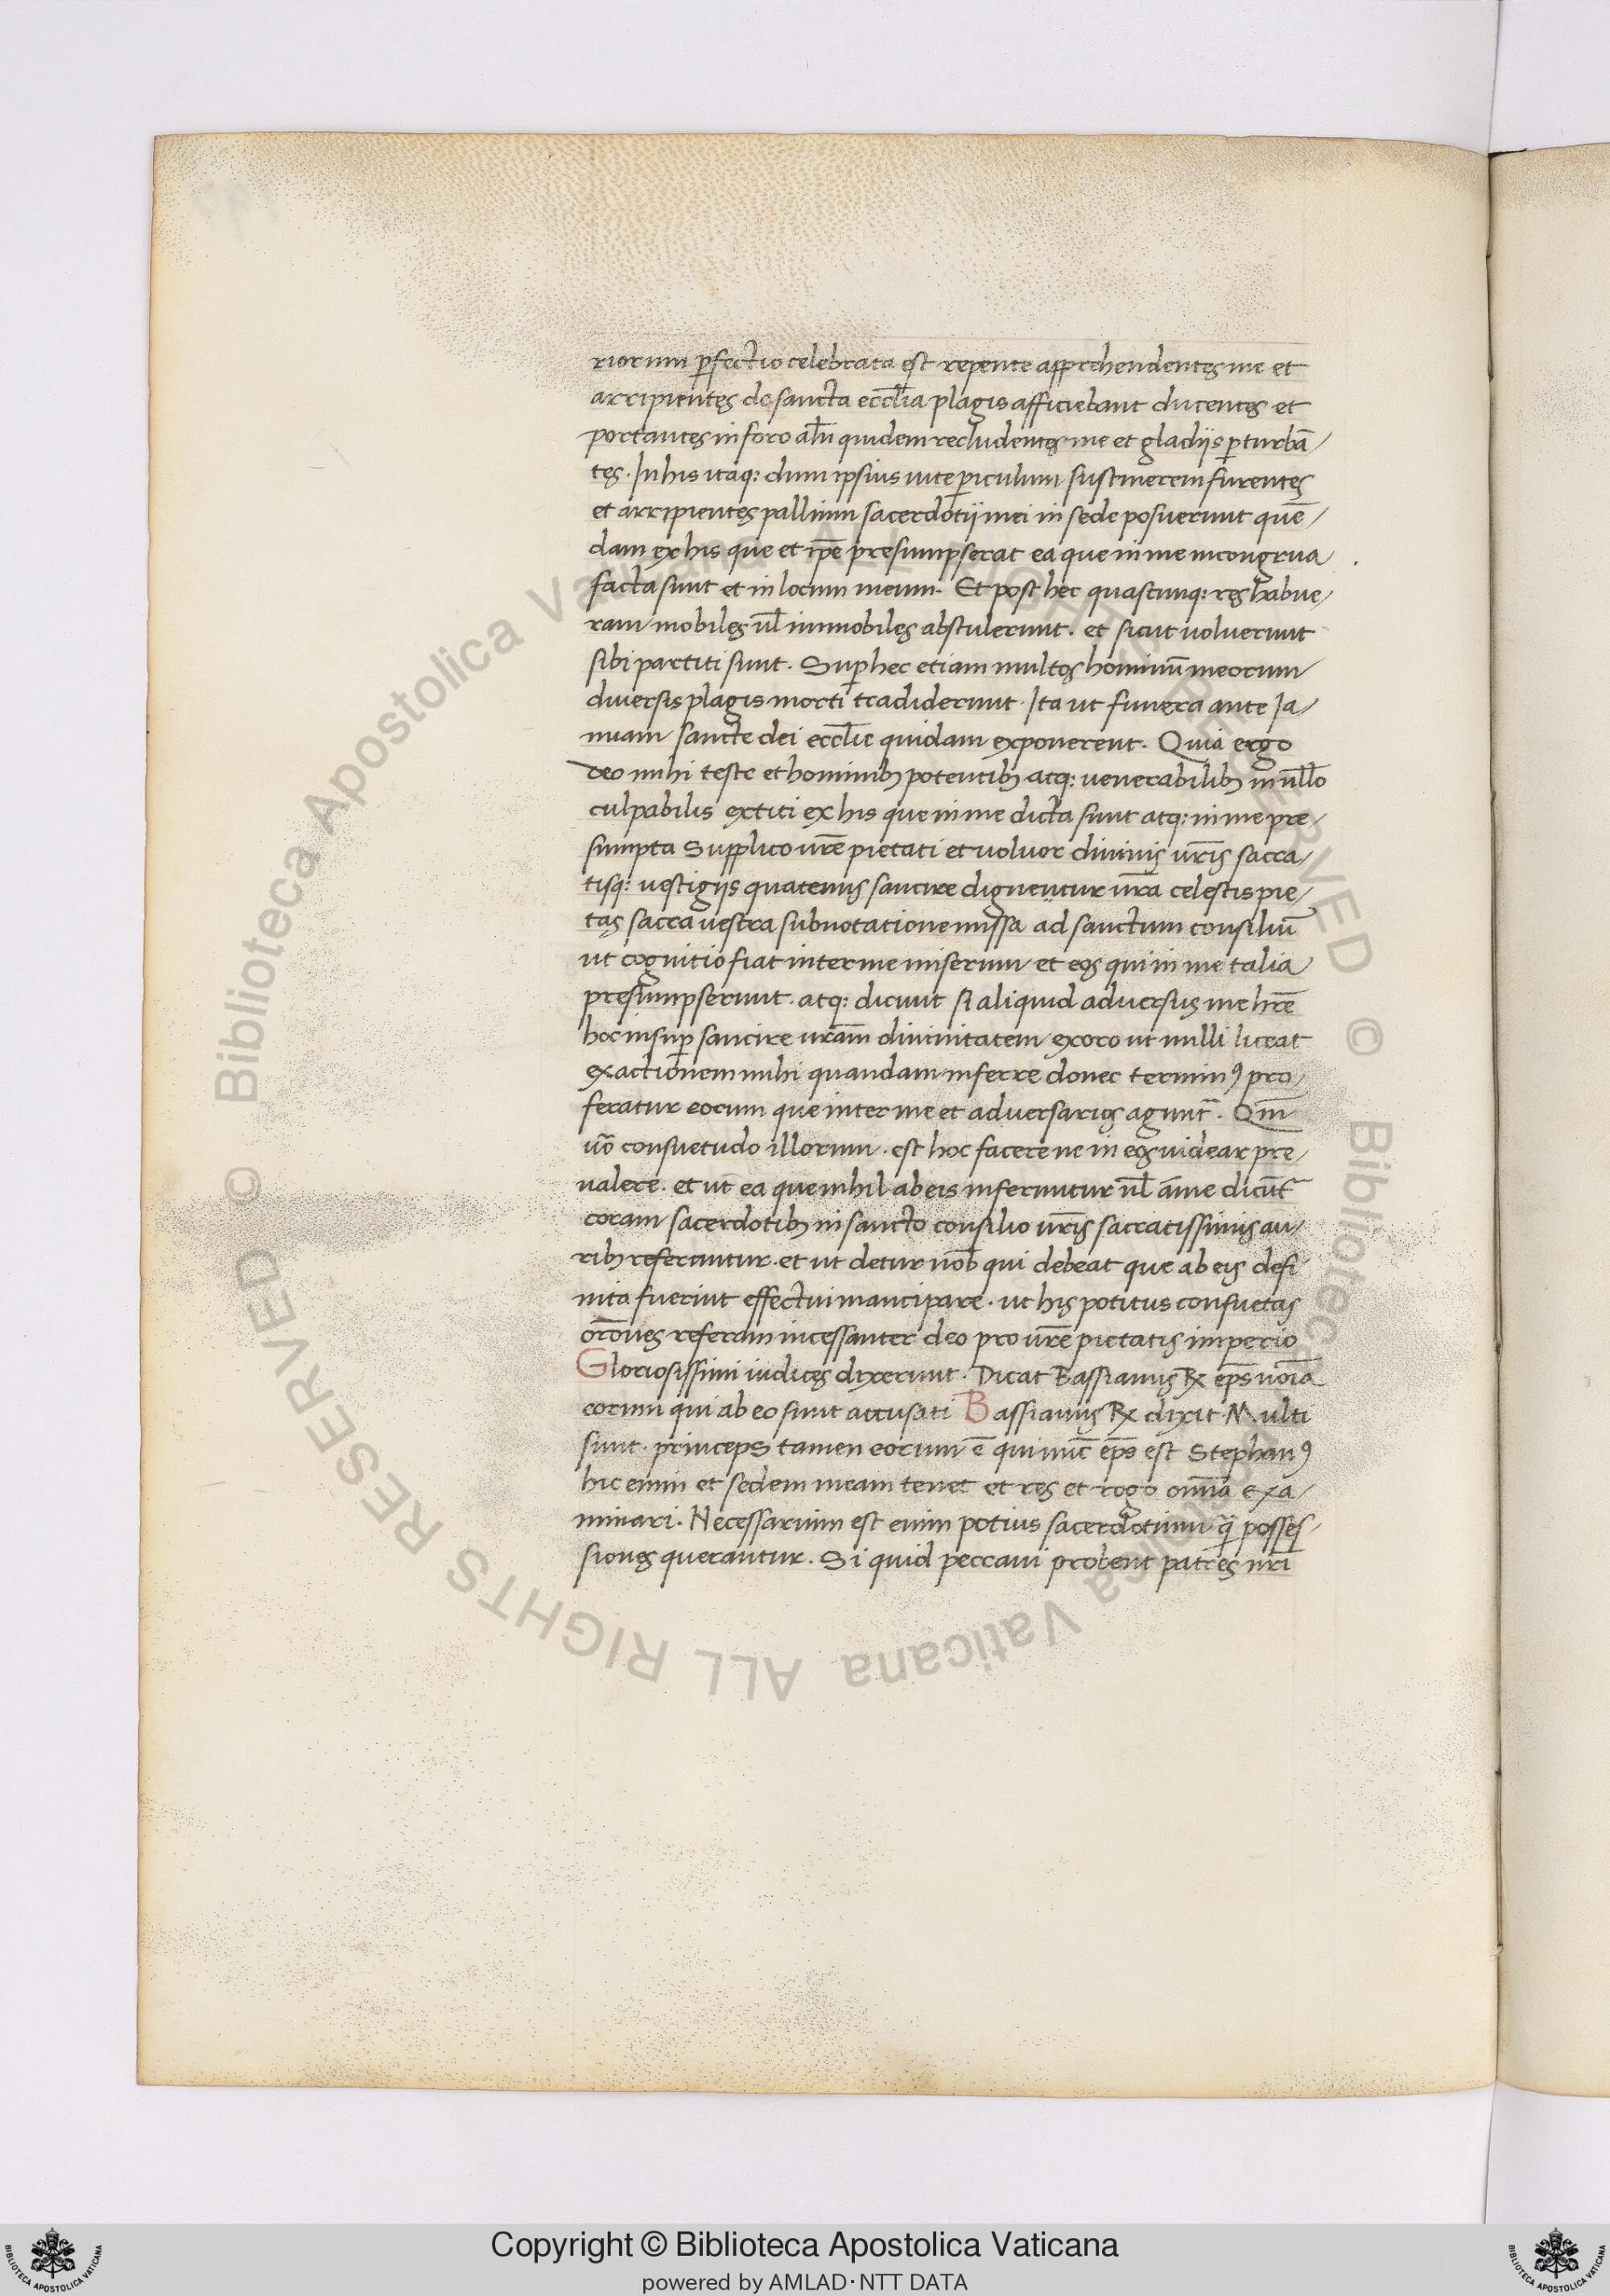 riorum ꝑfectio celebrata est repente apprehendentes me et
arripientes de sancta eccl̄ia plagis afficiebant ducentes et
portantes in foro al̄n quidem recludentes me et gladijs ꝑturbā/
tes. In his itaq: dum ipsius uite ꝑiculum sustinerem furentes
et arripientes pallium sacerdotij mei in sede posuerunt quē/
dam ex his que et ip̄e presumpserat ea que in me incongrua
facta sunt et in locum meum. Et post hec quascunq: res habue/
ram mobiles ul̄ immobiles abstulerunt. et sicut uoluerunt
sibi partiti sunt. Suꝑ hec etiam multos hominū meorum
diuersis plagis morti tradiderunt. Ita ut funera ante Ia/
nuam sancte dei eccl̄ie quidam exponerent. Quia ergo
deo mihi teste et hominibꝫ potentibꝫ atq: uenerabilibꝫ in ull̄o
culpabilis extiti ex his que in me dicta sunt atq: in me pre/
sumpta Supplico ur̄e pietati et uoluor diuinis ur̄is sacra/
tisq: uestigijs quatenus sancire dignentur ur̄a celestis pie/
tas sacra uestra subnotatione missa ad sanctum consiliū
ut cognitio fiat inter me miserum et eos qui in me talia
presumpserunt. atq: dicunt si aliquid aduersus me hr̄e
hoc insuꝑ sancire ur̄am diuinitatem exoro ut nulli liceat
exactionem mihi quandam inferre donec terminꝰ pro/
feratur eorum que inter me et aduersarios agunt̄. Qm̄
uō consuetudo illorum. est hoc facere ne in eos uidear pre/
ualere. et ut ea que nihil ab eis inferuntur ul̄ a me dicūt̄
coram sacerdotibꝫ in sancto consilio ur̄is sacratissimis au/
ribꝫ referantur. et ut detur nob̄ qui debeat que ab eis defi
nita fuerint effectui mancipare. ut his potitus consuetas
or̄ones referam incessanter deo pro ur̄e pietatis imperio
Gloriosissimi iudices dixerunt. Dicat Bassianus ℞ ep̄s noīa
eorum qui ab eo sunt accusati Bassianus ℞ dixit. Multi
sunt. princeps tamen eorum ē qui nūc ep̄s est Stephanꝰ
hic enim et sedem meam tenet et res et rogo om̄ia exa/
minari. Necessarium est enim potius sacerdotium q̄ posses/
siones querantur. Si quid peccaui probent patres nr̄i
Copyright © Biblioteca Apostolica Vaticana
powered by AMLAD·NTT DATA